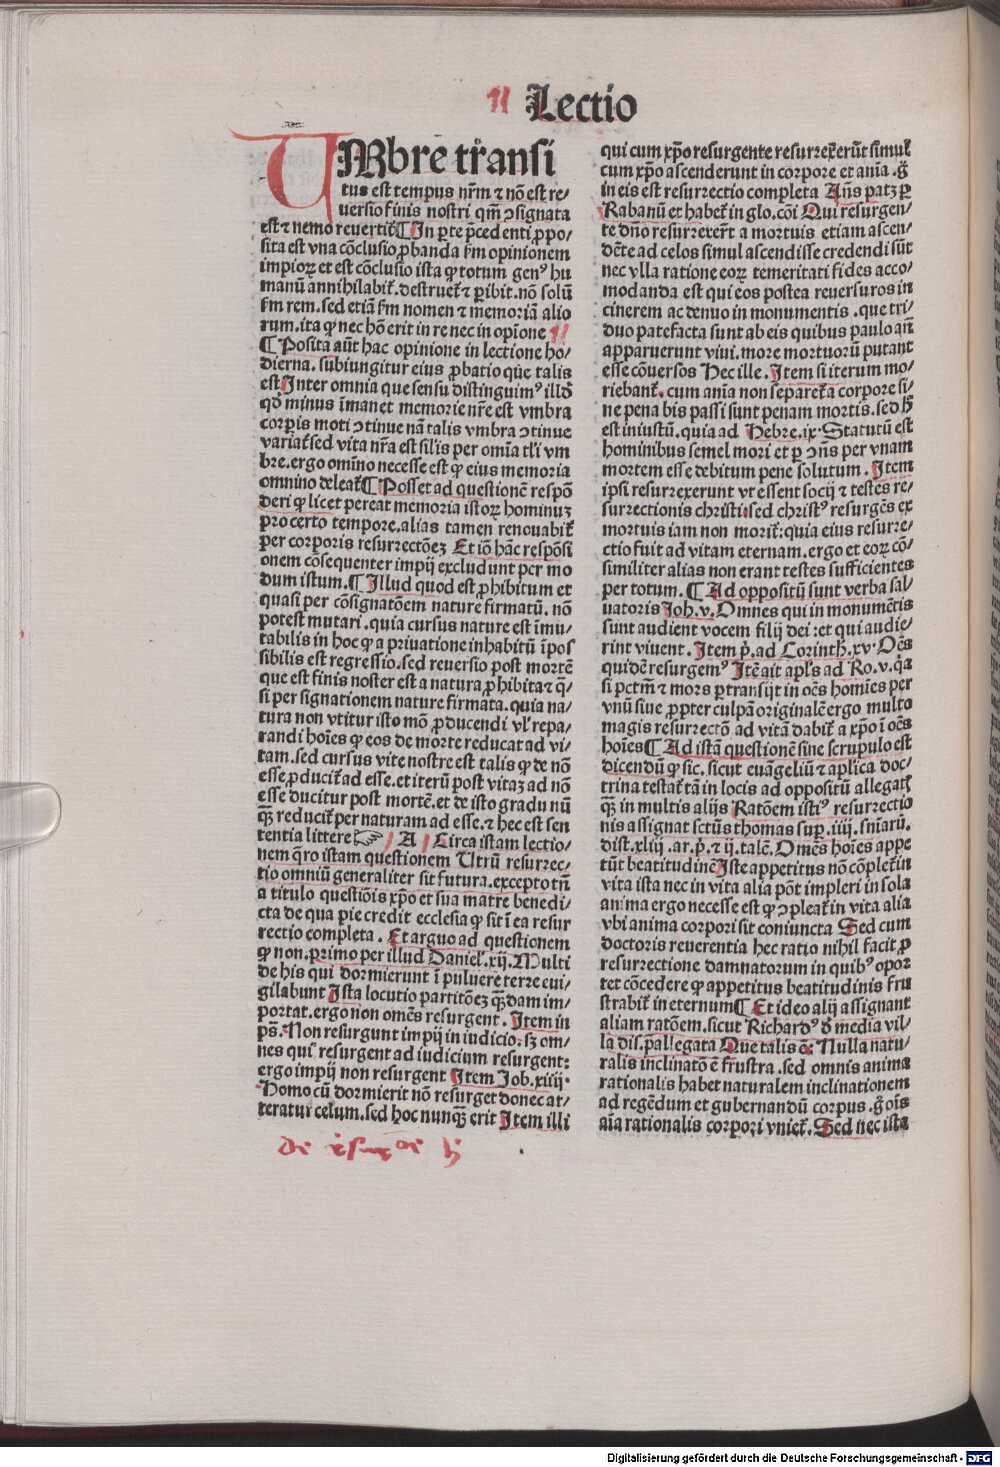 Lectio
UMbre transi
tus est tempus nr̃m ⁊ nō est re/
uersio finis nostri qm̃ ↄsignata
est ⁊ nemo reuertit᷑ ¶ In ꝑte p̄cedenti ꝓpo/
sita est vna cōclusio ꝓbanda ẜm opinionem
impioꝝ et est cōclusio ista ꝙ totum genꝰ hu
manū annihilabit᷑. destruet᷑ ⁊ ꝑibit. nō solū
ẜm rem. sed etiā ẜm nomen ⁊ memoriā alio
rum. ita ꝙ nec hō erit in re nec in opīone
¶ Posita aūt hac opinione in lectione ho/
dierna. subiungitur eius ꝓbatio que talis
est Inter omnia que sensu distinguimꝰ illđ
qđ minus īmanet memorie nr̃e est vmbra
corꝑis moti ↄtinue nā talis vmbra ↄtinue
variat᷑ sed vita nr̃a est sil̃is per omīa tl̓i vm
bre. ergo omīno necesse est ꝙ eius memoria
omnino deleat᷑ ¶ Posset ad questionē respō
deri ꝙ licet pereat memoria istoꝝ hominuꝫ
pro certo tempore. alias tamen renouabit᷑
per corporis resurrectōeꝫ Et iō hāc respōsi
onem cōsequenter impij excludunt per mo
dum istum. ¶ Illud quod est ꝓhibitum et
quasi per cōsignatōem nature firmatū. nō
potest mutari. quia cursus nature est īmu/
tabilis in hoc ꝙ a priuatione in habitū īpos
sibilis est regressio. sed reuersio post mortē
que est finis noster est a natura ꝓhibita ⁊ q̄/
si per signationem nature firmata. quia na/
tura non vtitur isto mō ꝓducendi vl̓ repa/
randi hoīes ꝙ eos de morte reducat ad vi/
tam. sed cursus vite nostre est talis ꝙ de nō
esse. ꝓducit᷑ ad esse. et iterū post vitaꝫ ad nō
esse ducitur post mortē. et de isto gradu nū
q̄ꝫ reducit᷑ per naturam ad esse. ⁊ hec est sen
tentia littere ☞ A Circa istam lectio/
nem q̄ro istam questionem Utrū resurrec/
tio omniū generaliter sit futura. excepto tn̄
a titulo questiōis xp̄o et sua matre benedi/
cta de qua pie credit ecclesia ꝙ sit ī ea resur
rectio completa. Et arguo ad questionem
ꝙ non. primo per illud Daniel̓. xij. Multi
de his qui dormierunt ī puluere terre eui/
gilabunt Ista locutio partitōeꝫ q̄ꝫdam im/
portat. ergo non omēs resurgent. Item in
ps̄. Non resurgunt impij in iudicio. sꝫ om/
nes qui resurgent ad iudicium resurgent:
ergo impij non resurgent Item Job. xiiij.
Homo cū dormierit nō resurget donec at/
teratur celum. sed hoc nunq̄ꝫ erit Item illi
qui cum xp̄o resurgente resurrexerūt simul
cum xp̄o ascenderunt in corpore et anīa. g̊
in eis est resurrectio completa Añs patꝫ ꝑ
Rabanū et habet᷑ in glo. cōi Qui resurgen/
te dn̄o resurrexerr̄t a mortuis etiam ascen/
dēte ad celos simul ascendisse credendi sūt
nec vlla ratione eoꝝ temeritati fides acco/
modanda est qui eos postea reuersuros in
cinerem ac denuo in monumentis. que tri/
duo patefacta sunt ab eis quibus paulo añ
apparuerunt viui. more mortuorū putant
esse cōuersos Hec ille. Item si iterum mo/
riebant᷑. cum anīa non separet᷑ a corpore si/
ne pena bis passi sunt penam mortis. sed ħ
est iniustū. quia ad Hebre. ix. Statutū est
hominibus semel mori et ꝑ ↄñs per vnam
mortem esse debitum pene solutum. Item
ipsi resurrexerunt vt essent socij ⁊ testes re/
surrectionis christi. sed christꝰ resurgēs ex
mortuis iam non morit᷑: quia eius resurre/
ctio fuit ad vitam eternam. ergo et eoꝝ cō/
similiter alias non erant testes sufficientes
per totum. ¶ Ad oppositū sunt verba sal/
uatoris Joh. v. Omnes qui in monumētis
sunt audient vocem filij dei: et qui audie/
rint viuent. Item p̓. ad Corinth. xv. Oēs
quidē resurgemꝰ Itē ait apl̓s ad Ro. v. q̓a
si pctm̄ ⁊ mors ꝑtransijt in oēs homīes per
vnū siue ꝓpter culpā originalē ergo multo
magis resurrectō ad vitā dabit᷑ a xp̄o ī oēs
hoīes ¶ Ad istā questionē sine scrupulo est
dicendū ꝙ sic. sicut euāgeliū ⁊ aplica doc/
trina testat᷑ tā in locis ad oppositū allegat᷑
q̄ꝫ in multis alijs Ratōem istiꝰ resurrectio
nis assignat sctūs thomas suꝑ. iiij. sn̄iarū.
dist. xliij. ar. p̓. ⁊ ij. talē. Omēs hoīes appe
tūt beatitudinē Iste appetitus nō cōplet᷑ in
vita ista nec in vita alia pōt impleri in sola
anima ergo necesse est ꝙ ↄpleat᷑ in vita alia
vbi anima corpori sit coniuncta Sed cum
doctoris reuerentia hec ratio nihil facit ꝓ
resurrectione damnatorum in quibꝰ opor
tet cōcedere ꝙ appetitus beatitudinis fru
strabit᷑ in eternum ¶ Et ideo alij assignant
aliam ratōem. sicut Richardꝰ đ media vil/
la dis. p̄allegata Que talis ē: Nulla natu/
ralis inclinatō ē frustra. sed omnis anima
rationalis habet naturalem inclinationem
ad regēdum et gubernandū corpus. g̊ oīs
aīa rationalis corpori vniet᷑. Sed nec ista
Digitalisierung gefördert durch die Deutsche Forschungsgemeinschaft - DFG